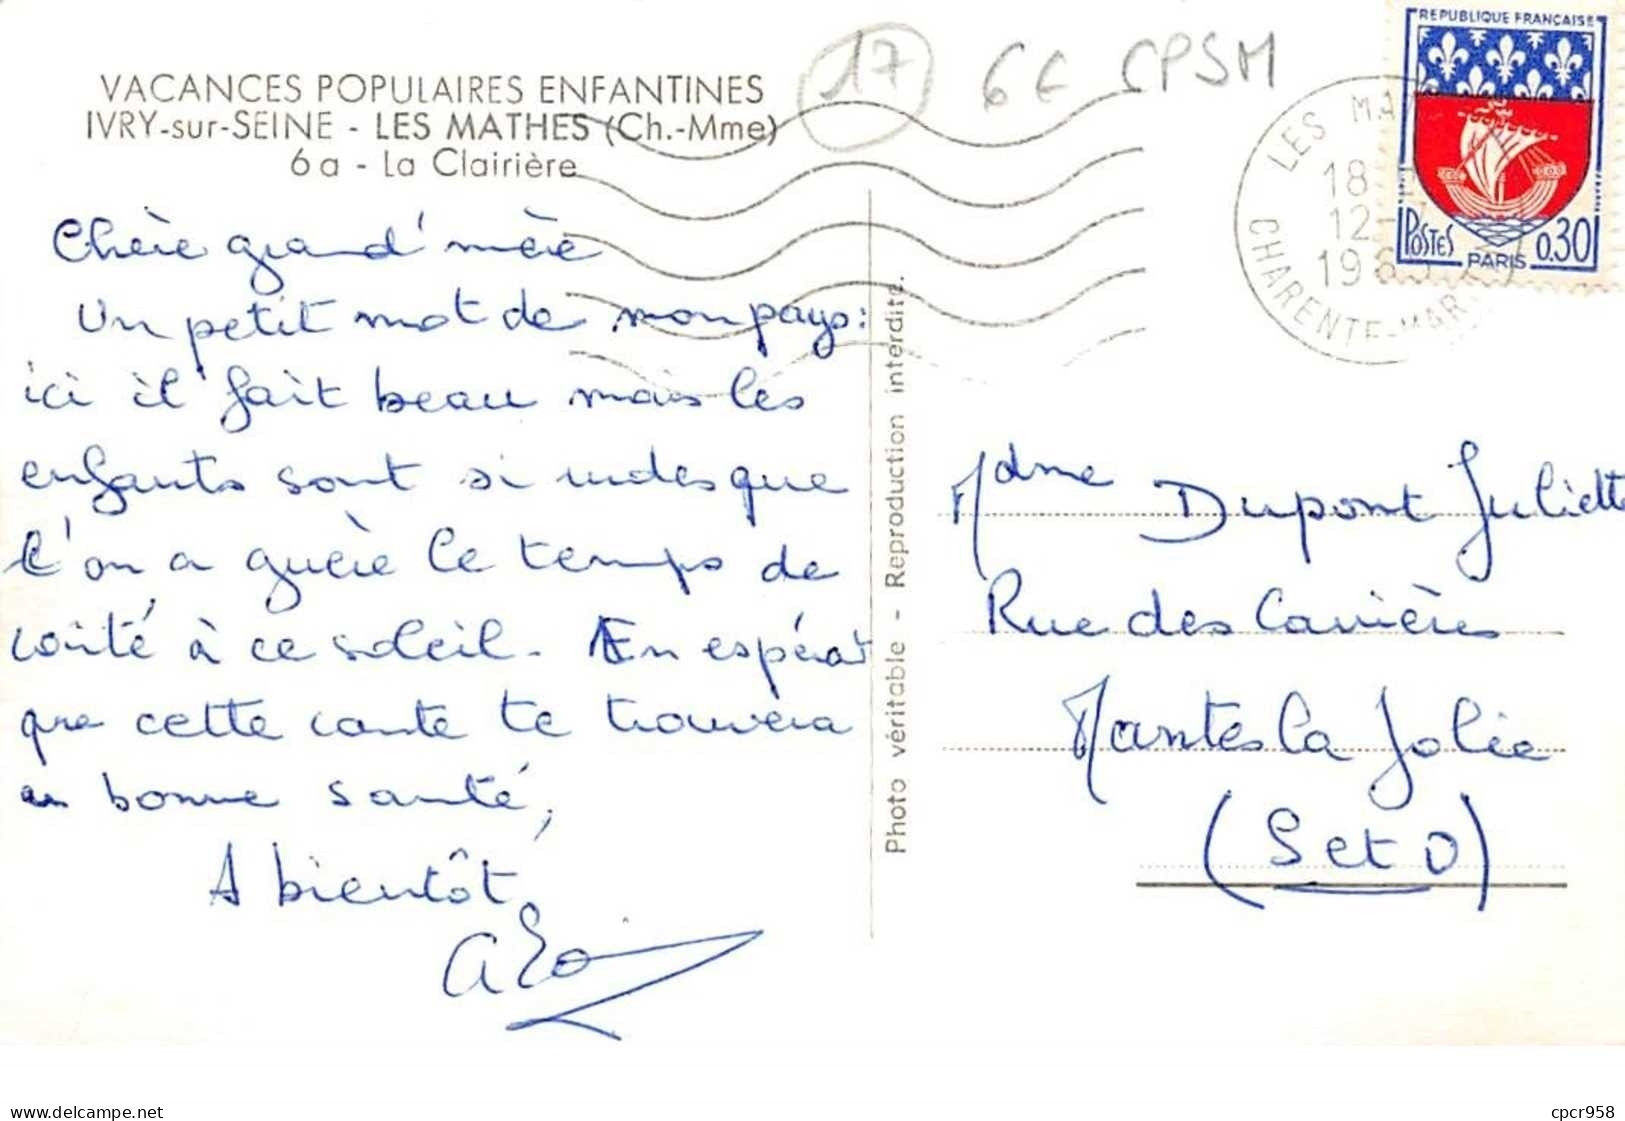 VACANCES POPULAIRES ENFANTINES
IVRY-sur-SEINE - LES MATHES (Ch.-Mme)
6a - La Clairière
17 6€ CPSM
REPUBLIQUE FRANÇAISE
POSTES PARIS 0.30
LES MA
18
12
196
CHARENTE-MAR
Chère grand'mère
Un petit mot de mon pays:
ici il fait beau mais les
enfants sont si rudes que
l'on a guère le temps de
goûté à ce soleil. En espérant
que cette carte te trouvera
en bonne santé,
A bientôt
Photo véritable - Reproduction interdite.
Mdme Dupont Juliette
Rue des Carrières
Mantes la Jolie
(S et O)
www.delcampe.net
cpcr958